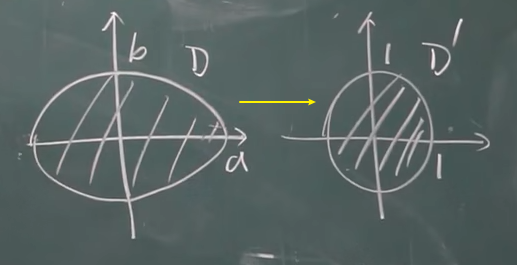 b D
a
1 D'
1